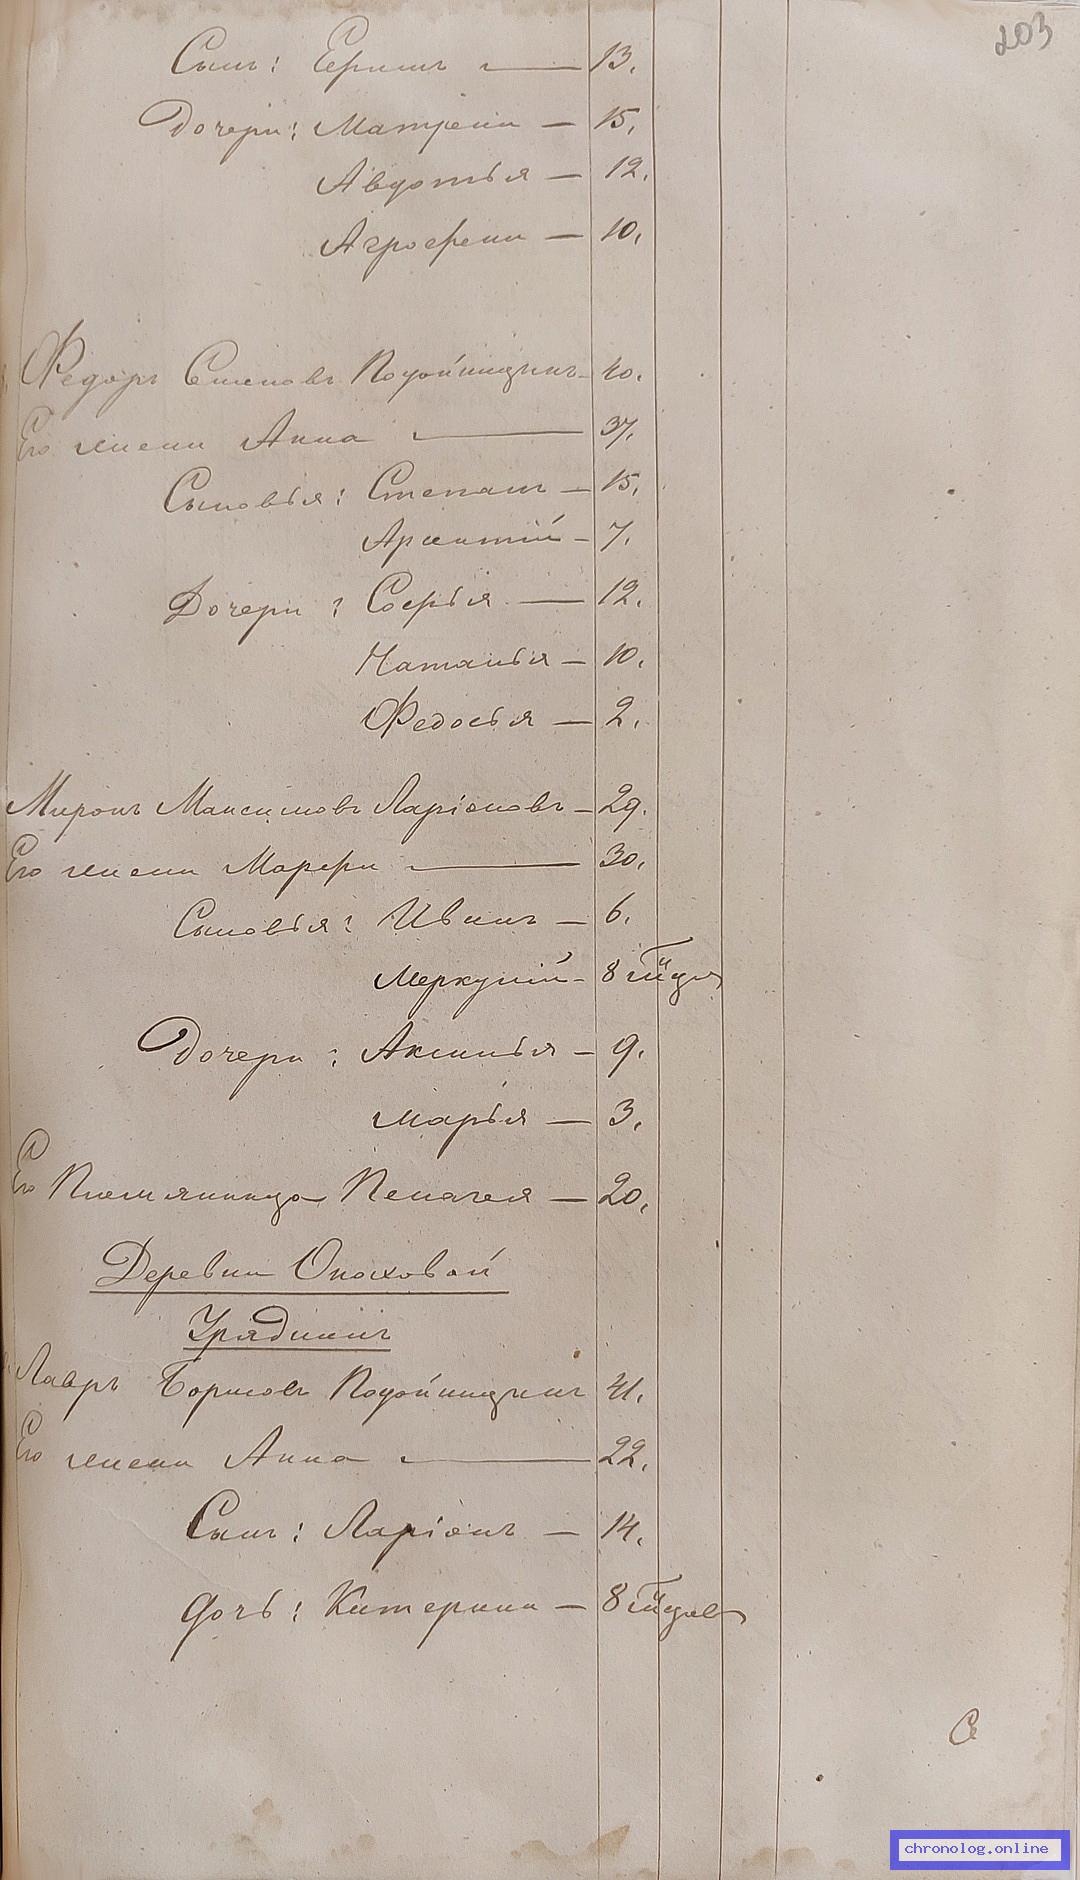 203
Сынъ: Ермилъ — 13.
Дочери: Матрена — 15.
Авдотья — 12.
Агрофена — 10.
Федоръ Степановъ Подойницынъ 40.
Его жена Анна — 37.
Сыновья: Степанъ — 15.
Арсентій — 7.
Дочери: Софья — 12.
Наталья — 10.
Федосья — 2.
Миронъ Максимовъ Ларіоновъ — 29.
Его жена Марфа — 30.
Сыновья: Иванъ — 6.
Меркурій — 8
Дочери: Аксинья — 9.
Марья — 3.
Его Племянница Пелагея — 20.
Деревни
Урядникъ
Лавръ Борисовъ Подойницынъ 41.
Его жена Анна — 22.
Сынъ: Ларіонъ — 14.
дочь: Катерина — 8
chronolog.online